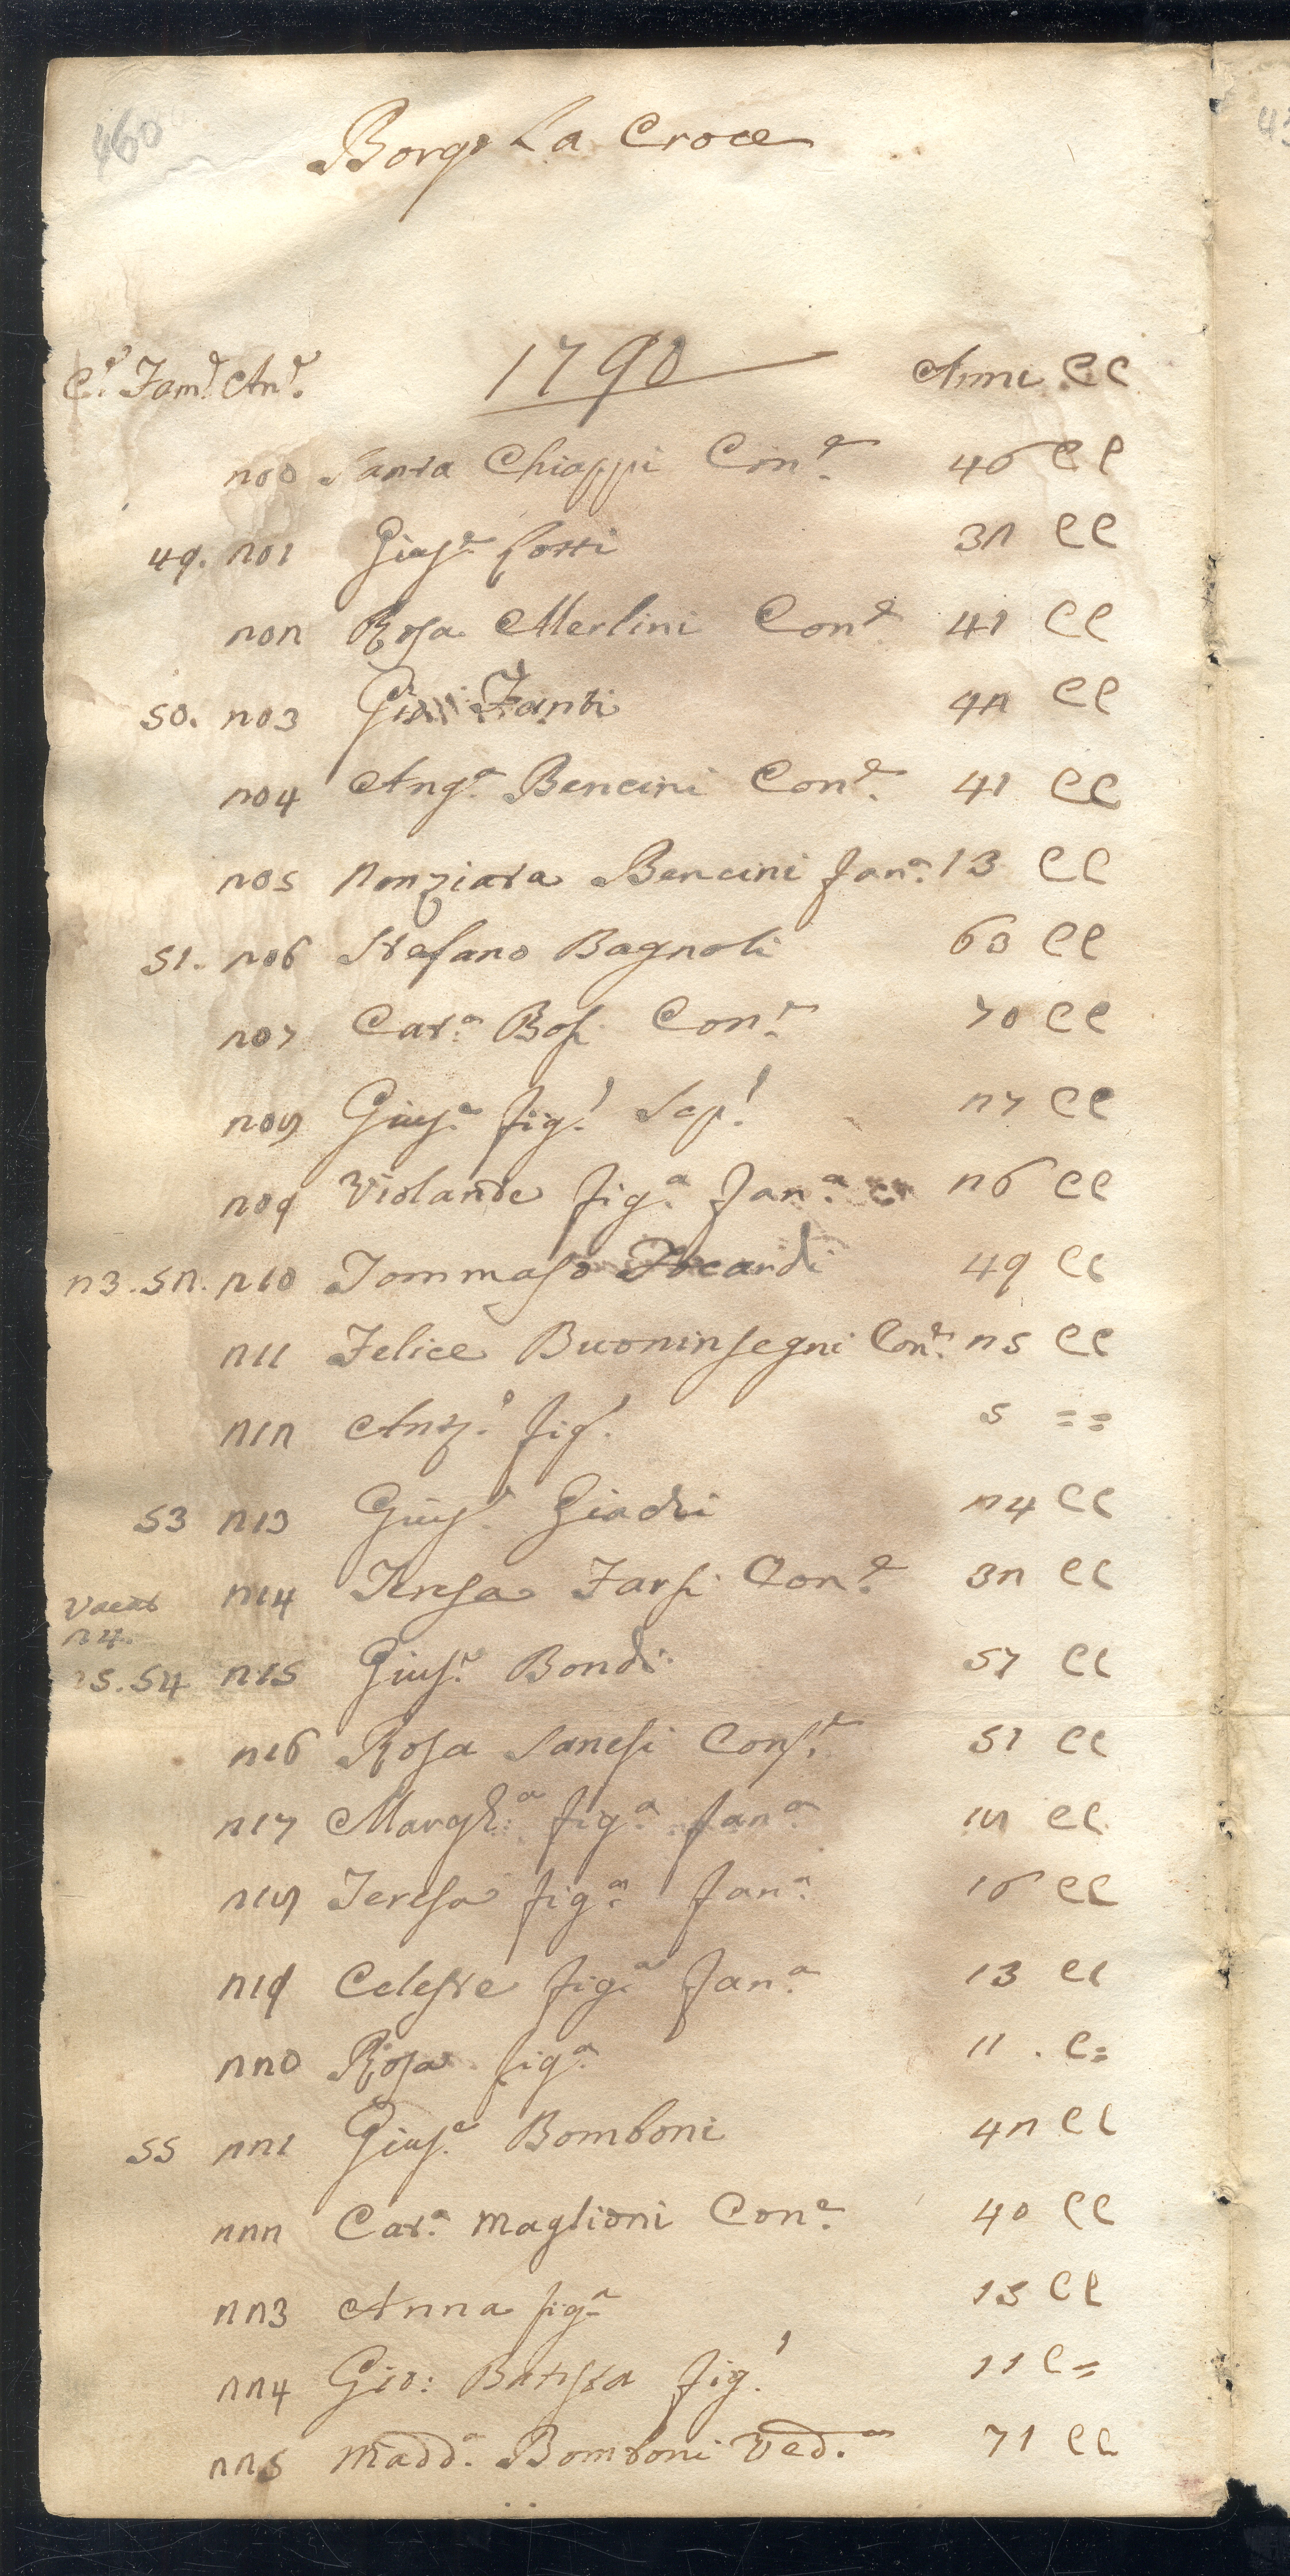 460
Borgo La Croce
1790
C.e Fam.e An.e Anni CC
200 Santa Chiappi Con.e 46 CC
49. 201 Gius.e Cotti 32 CC
202 Rosa Merlini Con.e 41 CC
50. 203 Gio: Fanti 42 CC
204 Ang.a Bencini Con.e 41 CC
205 Nonziata Bencini fan.a 13 CC
51. 206 Stefano Bagnoli 63 CC
207 Cat.a Bosi Con.e 70 CC
208 Gius.e fig.o Scap.o 27 CC
209 Violante fig.a fan.a 26 CC
23. 52. 210 Tommaso Focardi 49 CC
211 Felice Buoninsegni Con.e 25 CC
212 Ant.o fig.o 5 ==
53 213 Gius.e Giachi 24 CC
214 Teresa Farsi Con.e 32 CC
Vacat
24.
25. 54 215 Gius.e Bondi 57 CC
216 Rosa Sanesi Cons.e 51 CC
217 Margh.a fig.a fan.a 18 CC
218 Teresa fig.a fan.a 16 CC
219 Celeste fig.a fan.a 13 CC
220 Rosa fig.a 11 . C=
55 221 Gius.e Bomboni 42 CC
222 Cat.a Maglioni Con.e 40 CC
223 Anna fig.a 13 CC
224 Gio: Batista fig.o 11 C=
225 Madd.a Bomboni Ved.a 71 CC